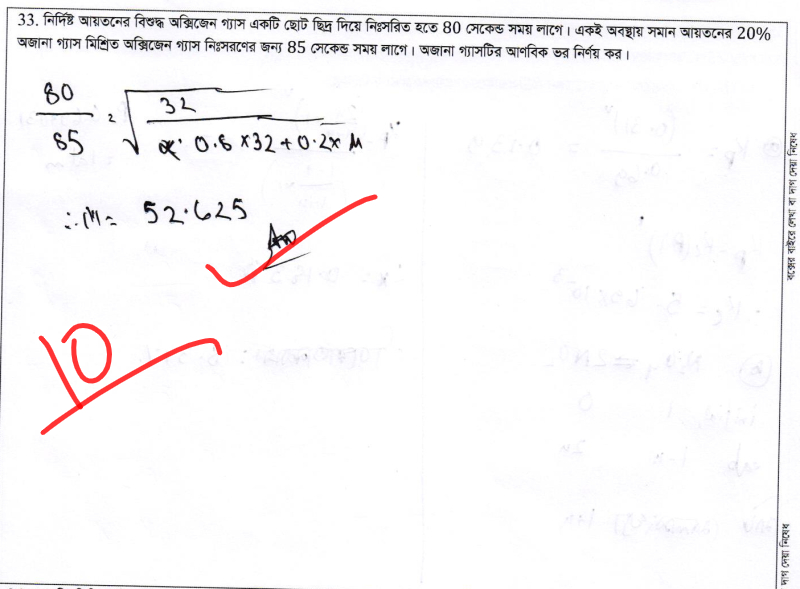 33. নির্দিষ্ট আয়তনের বিশুদ্ধ অক্সিজেন গ্যাস একটি ছোট ছিদ্র দিয়ে নিঃসরিত হতে 80 সেকেন্ড সময় লাগে। একই অবস্থায় সমান আয়তনের 20%
অজানা গ্যাস মিশ্রিত অক্সিজেন গ্যাস নিঃসরণের জন্য 85 সেকেন্ড সময় লাগে। অজানা গ্যাসটির আণবিক ভর নির্ণয় কর।
80/85 = √32/0.8×32+0.2×M
∴ M = 52.625
Ans
10
বক্সের বাইরে লেখা বা দাগ দেয়া নিষেধ
দাগ দেয়া নিষেধ